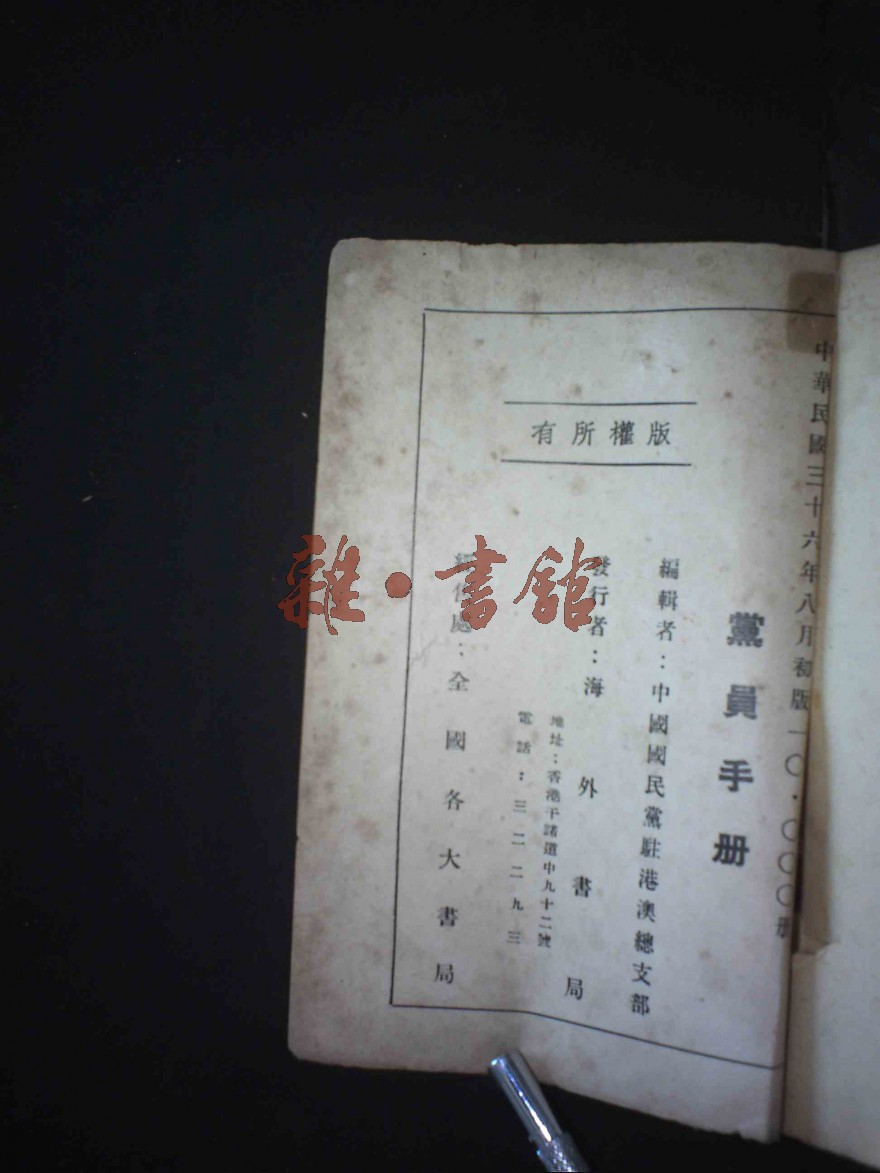 中華民國三十六年八月初版一〇·〇〇〇册
黨員手册
版權所有
編輯者：中國國民黨駐港澳總支部
發行者：海外書局
地址：香港干諾道中九十二號
電話：三二二九三
經售處：全國各大書局
雜·書館